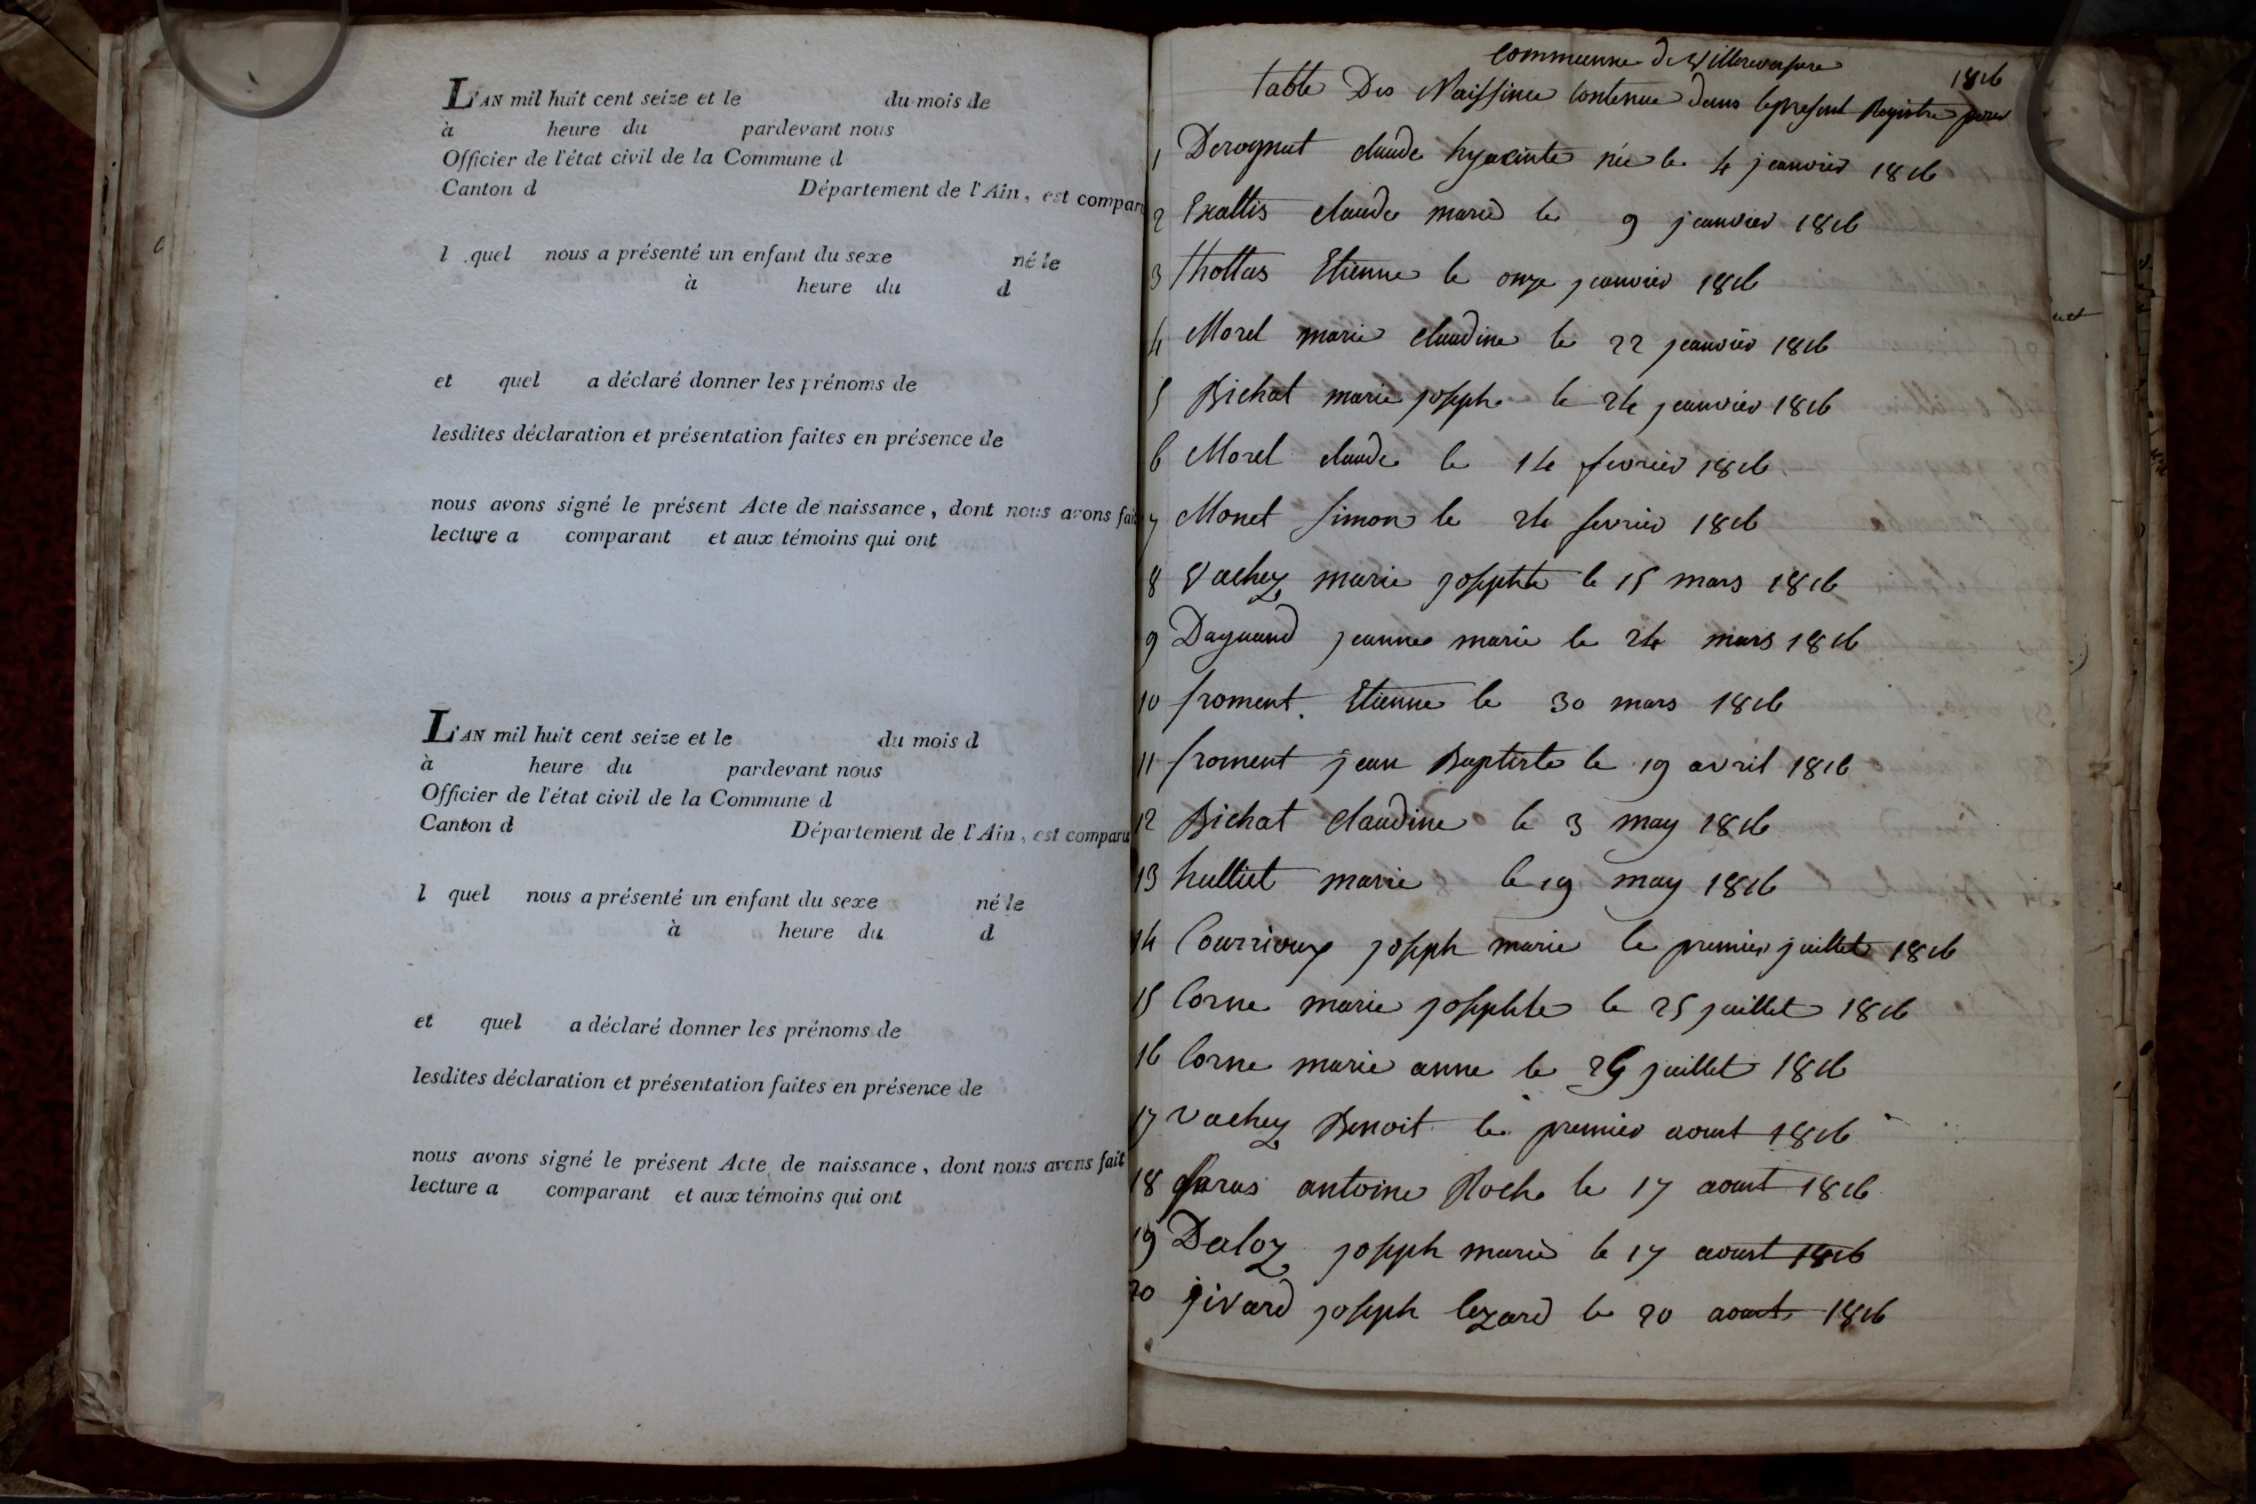 L'AN mil huit cent seize et le du mois de
à heure du pardevant nous
Officier de l'état civil de la Commune d
Canton d Département de l'Ain, est comparu
l quel nous a présenté un enfant du sexe né le
à heure du d
et quel a déclaré donner les prénoms de
lesdites déclaration et présentation faites en présence de
nous avons signé le présent Acte de naissance, dont nous avons fait
lecture a comparant et aux témoins qui ont
L'AN mil huit cent seize et le du mois d
à heure du pardevant nous
Officier de l'état civil de la Commune d
Canton d Département de l'Ain, est comparu
l quel nous a présenté un enfant du sexe né le
à heure du d
et quel a déclaré donner les prénoms de
lesdites déclaration et présentation faites en présence de
nous avons signé le présent Acte de naissance, dont nous avons fait
lecture a comparant et aux témoins qui ont
Commune de Villereversure
table Des Naissince Contenue dans le present Registre pour 1816
1 Derognat claude hyacinte née le 4 janvier 1816
2 claude marie le 9 janvier 1816
3 Etienne le onze janvier 1816
4 Morel marie claudine le 22 janvier 1816
5 Bichat marie joseph le 24 janvier 1816
6 Morel claude le 14 fevrier 1816
7 Monet simon le 24 fevrier 1816
8 Vachez marie josephte le 15 mars 1816
9 jeanne marie le 24 mars 1816
10 froment Etienne le 30 mars 1816
11 froment jean Baptiste le 19 avril 1816
12 Bichat Claudine le 3 may 1816
13 hulliet marie le 19 may 1816
14 Courrioux joseph marie le premier juillet 1816
15 Corne marie josephte le 25 juillet 1816
16 Corne marie anne le juillet 1816
17 Vachez Benoit le premier aout 1816
18 antoine Roch le 17 aout 1816
19 Daloz joseph marie le 17 aoust 1816
20 jivard joseph Cezard le 20 aout 1816